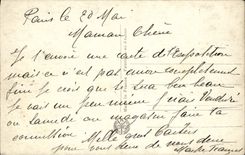 Paris le 20 Mai
Maman Chérie
Je t'envoie une carte de l'exposition
mais ce n'est pas encore complètement
fini je crois que ce sera bien beau
Je vais un peu mieux j'irai
ou samedi au magasin faire ta
commission Mille gros baisers
pour vous deux de nous deux